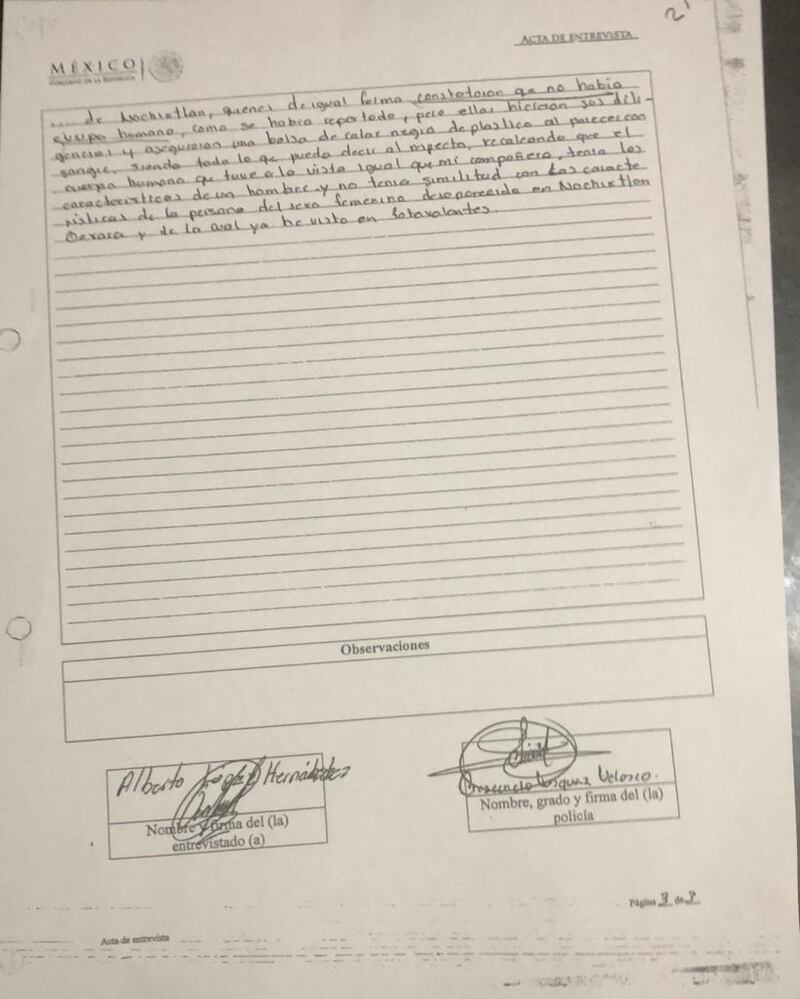 2
ACTA DE ENTREVISTA
MÉXICO
GOBIERNO DE LA REPÚBLICA
.... de Nochixtlan, quienes de igual forma constataron que no habia
cuerpo humano, como se habia reportado, pero ellos hicieron sus dili-
gencias y aseguraron una bolsa de color negra de plastico al parecer con
sangre, siendo todo lo que puedo decir al respecto, recalcando que el
cuerpo humano que tuve a la vista igual que mi compañero, tenia las
caracteristicas de un hombre y no tenia similitud con las caracte
risticas de la persona del sexo femenina desaparecida en Nochixtlan
Oaxaca y de la cual ya he visto en fotovolantes.
Observaciones
Alberto Hernández
Nombre y firma del (la)
entrevistado (a)
Vasquez Velasco.
Nombre, grado y firma del (la)
policía
Página 3 de 3
Acta de entrevista